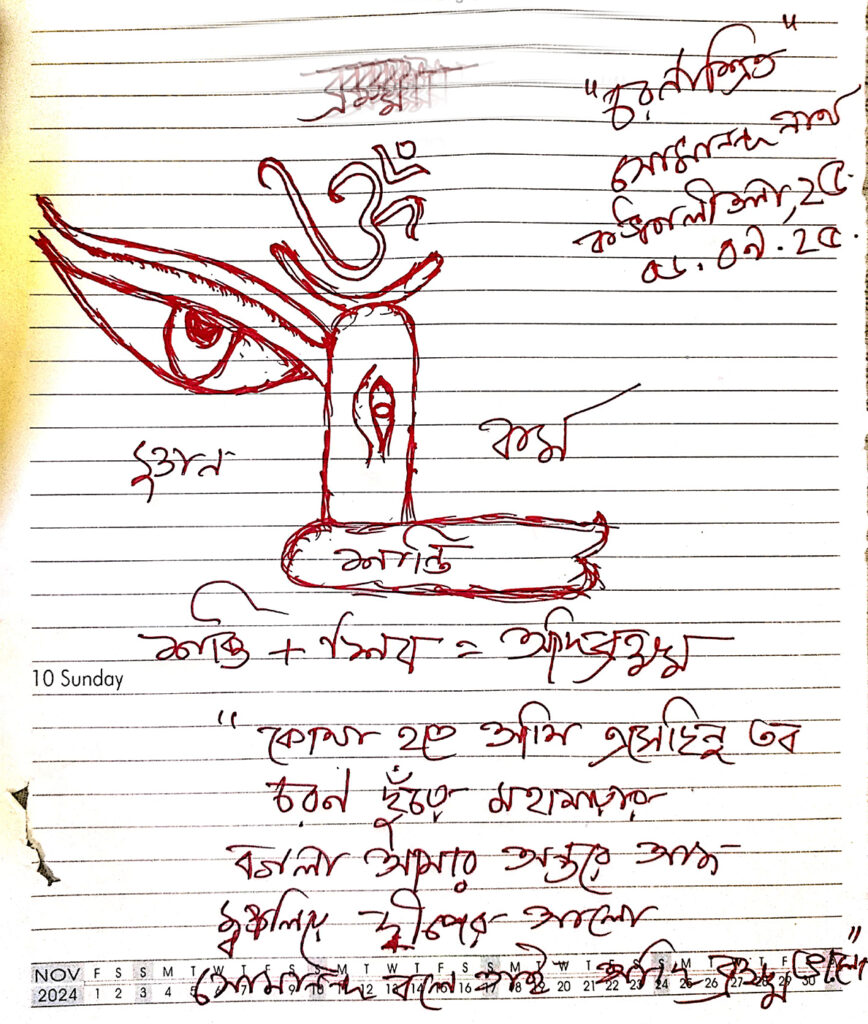 ব্রহ্ম
"চরণাশ্রিত"
সোমানন্দ নাথ
২৫.
০৮.০৯.২৫.
ॐ
কর্ম
শান্তি
শক্তি + শিব = আদিব্রহ্ম
10 Sunday
"কোথা হতে আমি এসেছিনু তব
চরণ ছুঁতে মহামায়ার
বগলা আমার অন্তরে আজ
দ্বীপের আলো
সোমানন্দ বলে তাই আদি ব্রহ্ম হলো"
NOV F S S M T W T F S S M T W T F S S M T W T F S S M T W T F S
2024 1 2 3 4 5 6 7 8 9 10 11 12 13 14 15 16 17 18 19 20 21 22 23 24 25 26 27 28 29 30